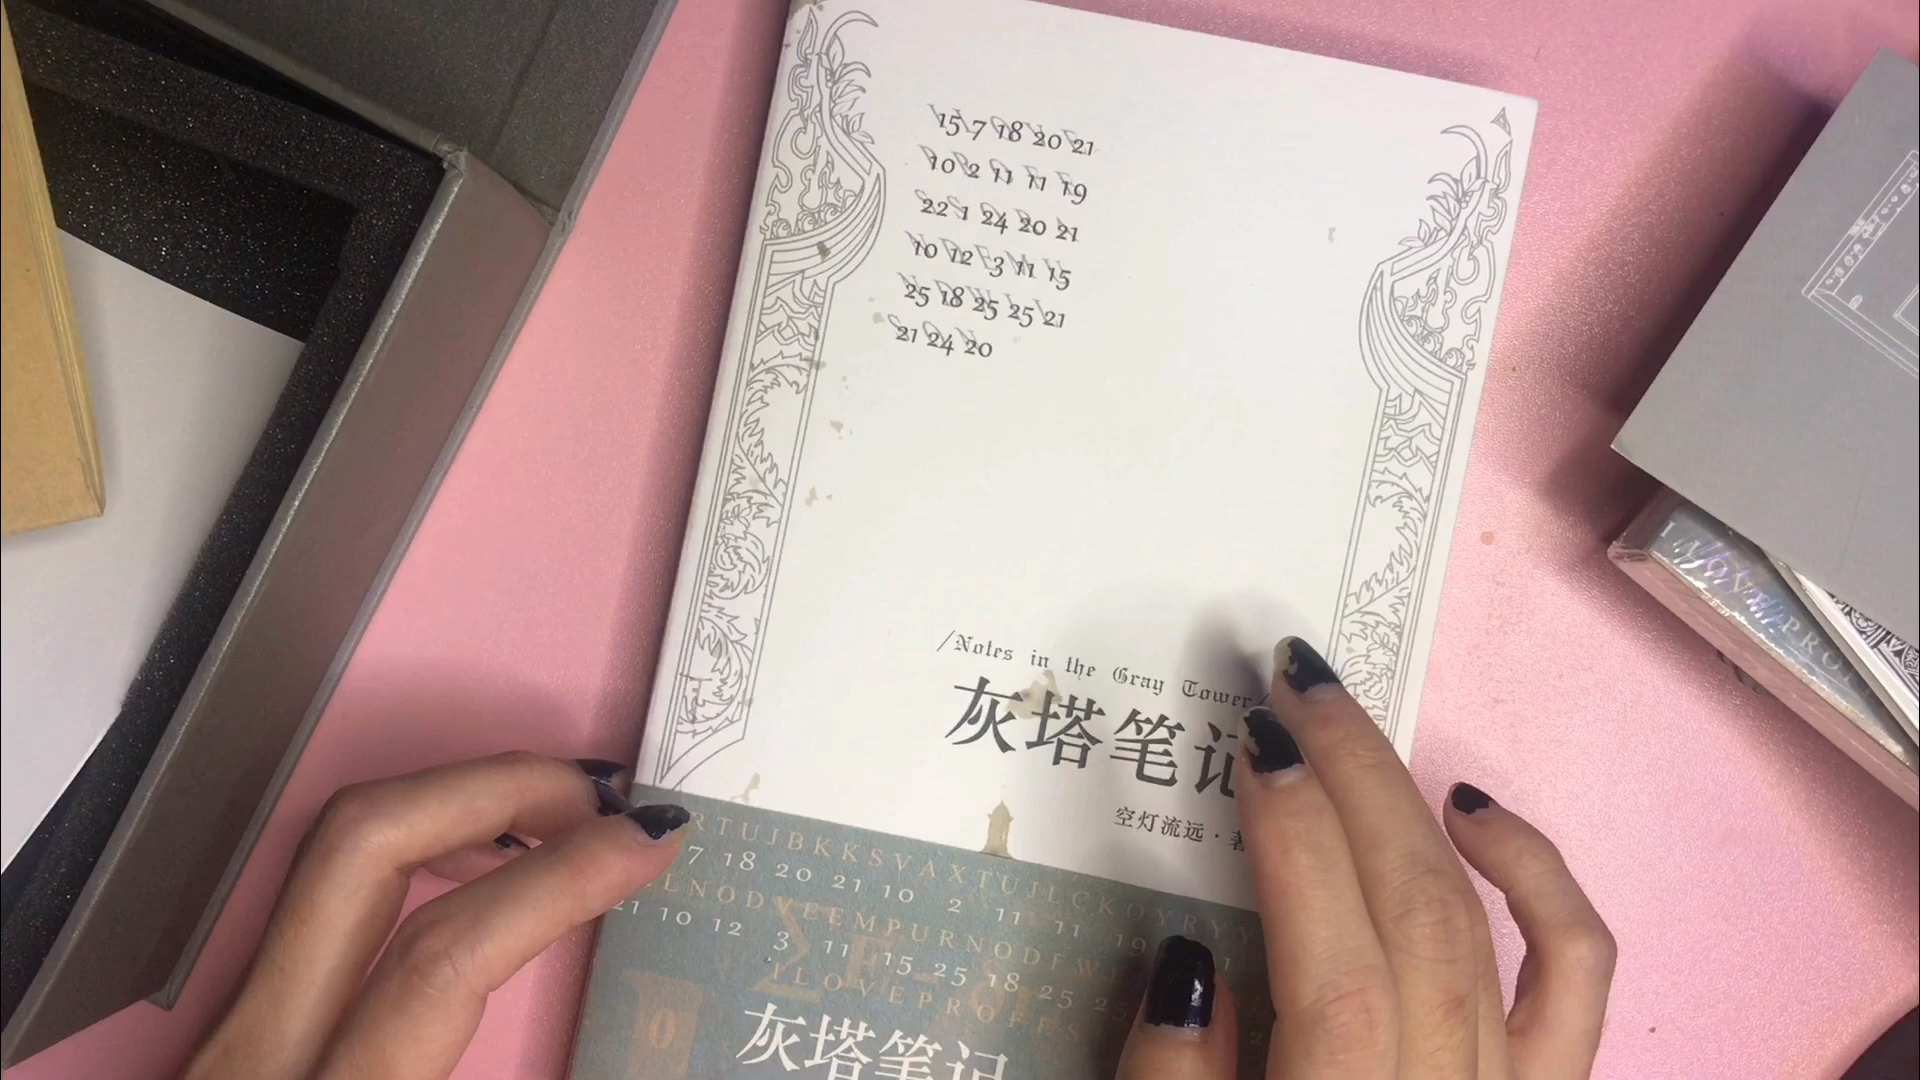 15 7 18 20 21
10 2 11 11 19
22 1 24 20 21
10 12 3 11 15
25 18 25 25 21
21 24 20
/Notes in the Gray Tower/
灰塔笔记
空灯流远·著
RTUJBKKSVAXTUJLCKOYRYY
7 18 20 21 10 2 11 11 19
LNODVEEMPURNODFW
21 10 12 3 11 15 25 18 25 25
ILOVEPROFES
0
灰塔笔记
PRO